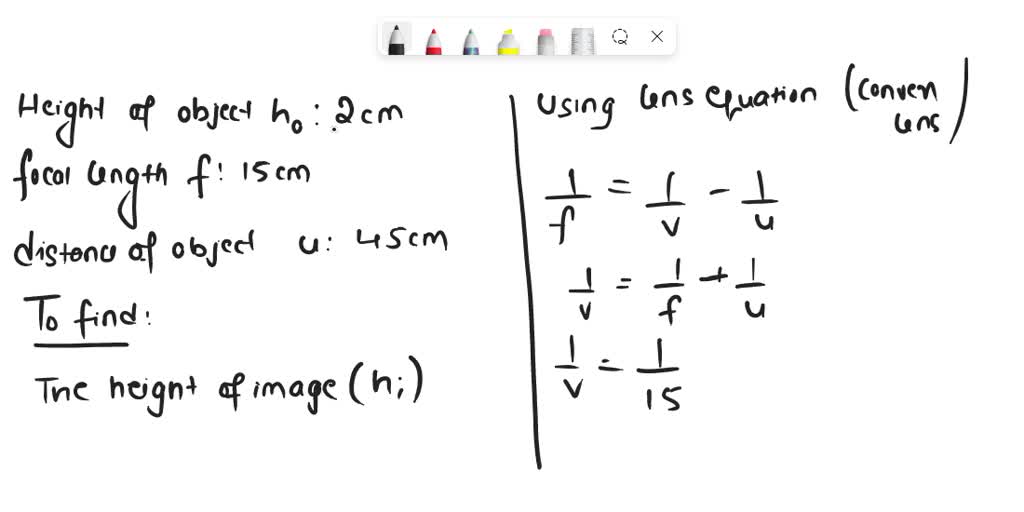 Height of object h₀ : 2cm
focal length f : 15cm
distance of object u : 45cm
To find :
The height of image (hi)
Using lens equation (conven
lens)
1/f = 1/v - 1/u
1/v = 1/f + 1/u
1/v = 1/15